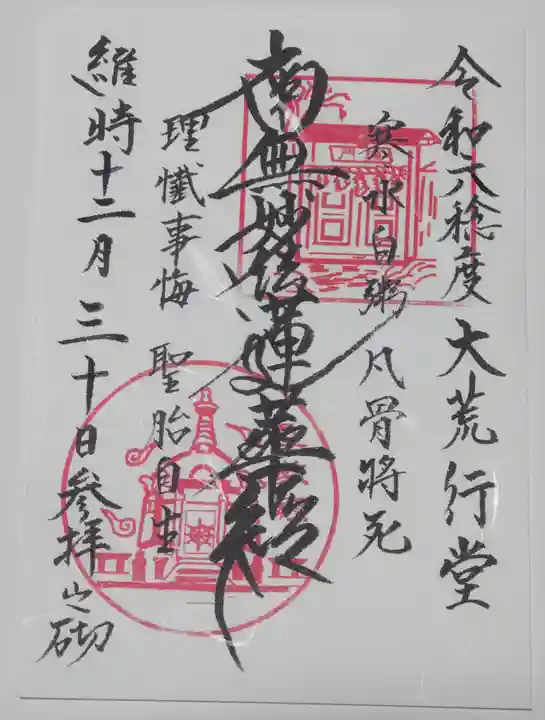 令和六稔度 大荒行堂
寒水白粥 凡骨将死
南無妙法蓮華経
理懺事悔 聖胎自生
維時十二月三十日参拝之砌